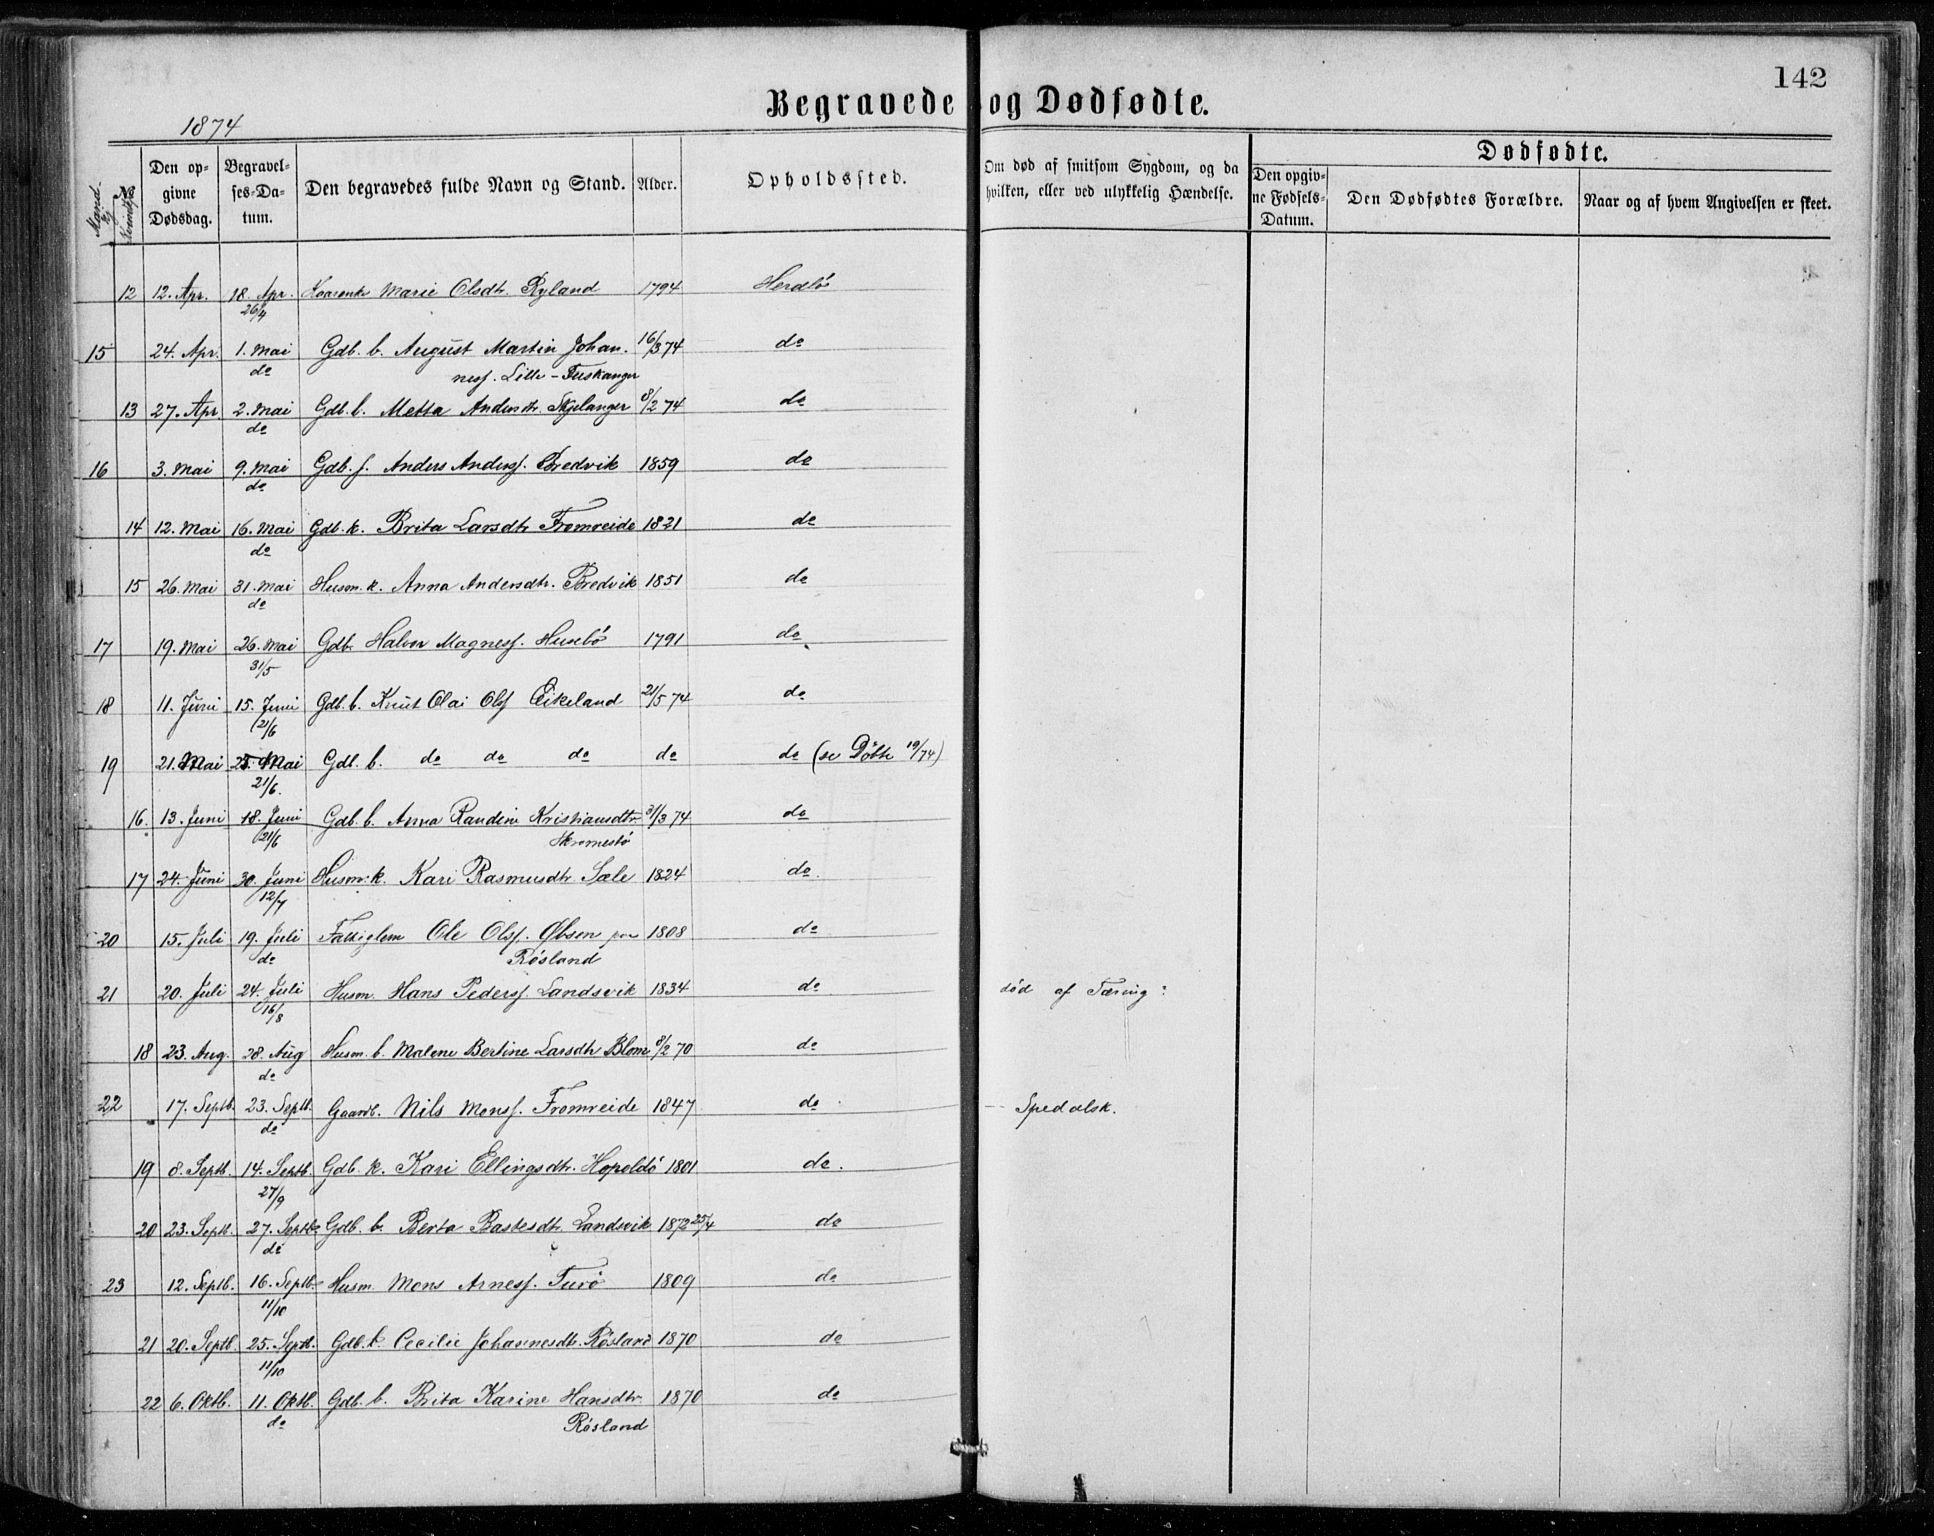 142
Begravede og Dødfødte.
1874
Mand. Kvindk. No
Den op- givne Dødsdag. Begravel- ses-Da- tum. Den begravedes fulde Navn og Stand. Alder. Opholdssted. Om død af smitsom Sygdom, og da hvilken, eller ved ulykkelig Hændelse. Dødfødte.
Den opgiv- ne Fødsels- Datum. Den Dødfødtes Forældre. Naar og af hvem Angivelsen er skeet.
12 12. Apr. 18. Apr. Marie Olsdtr. Ryland 1794 Herdlø
26/4
15 24. Apr. 1. Mai Gdb. b. August Martin Johan- 16/3 74 do
do nesf. Lille-Fuskanger
13 27. Apr 2. Mai Gdb. b. Metta Andersdtr. Skjelanger 8/2 74 do
do
16 3. Mai 9. Mai Gdb. s. Anders Andersf. Bredvik 1859 do
do
14 12. Mai 16. Mai Gdb. k. Brita Larsdtr Fromreide 1821 do
do
15 26. Mai 31. Mai Husm. k. Anna Andersdtr. Bredvik 1851 do
do
17 19. Mai 26. Mai Gdb. Halvor Magnesf. Husebø 1791 do
31/5
18 11. Juni 15. Juni Gdb. b. Knut Olai Olsf Eikeland 21/5 74 do
21/6
19 21. Mai 25. Mai Gdb. b. do do do do do (se Døbte 19/74)
21/6.
16. 13. Juni 18. Juni Gdb. b. Anna Randine Kristiansdtr. 31/3 74 do
21/6 Skromestø
17 24. Juni 30. Juni Husm. k. Kari Rasmusdtr Sæle 1824 do.
12/7
20 15. Juli 19. Juli Fattiglem Ole Olsf. Øbsen paa 1808 do
do Røsland
21 20. Juli 24. Juli Husm. Hans Pedersf. Landsvik 1834 do død af Tæring:
16/8
18 23. Aug. 28. Aug Husm. b. Malene Bertine Larsdtr Blom 8/2 70 do
do
22 17. Septb. 23. Septb. Gaardb. Nils Monsf. Fromreide 1847 do Spedalsk.
do
19 8. Septb. 14. Septb. Gdb. k. Kari Ellingsdtr. Hopeldø 1801 do.
27/9
20 23. Septb. 27. Septb. Gdb. b. Berta Bastesdtr. Landsvik 1872 25/4 do
do
23 12. Septb. 16. Septb. Husm. Mons Arnesf. Turø 1809 do
11/10
21 20. Septb. 25. Septb. Gdb. b. Cecilie Johannesdtr. Røsland 1870 do
11/10
22 6. Oktb. 11. Oktb. Gdb. b. Brita Karine Hansdtr. 1870 do
do Røsland